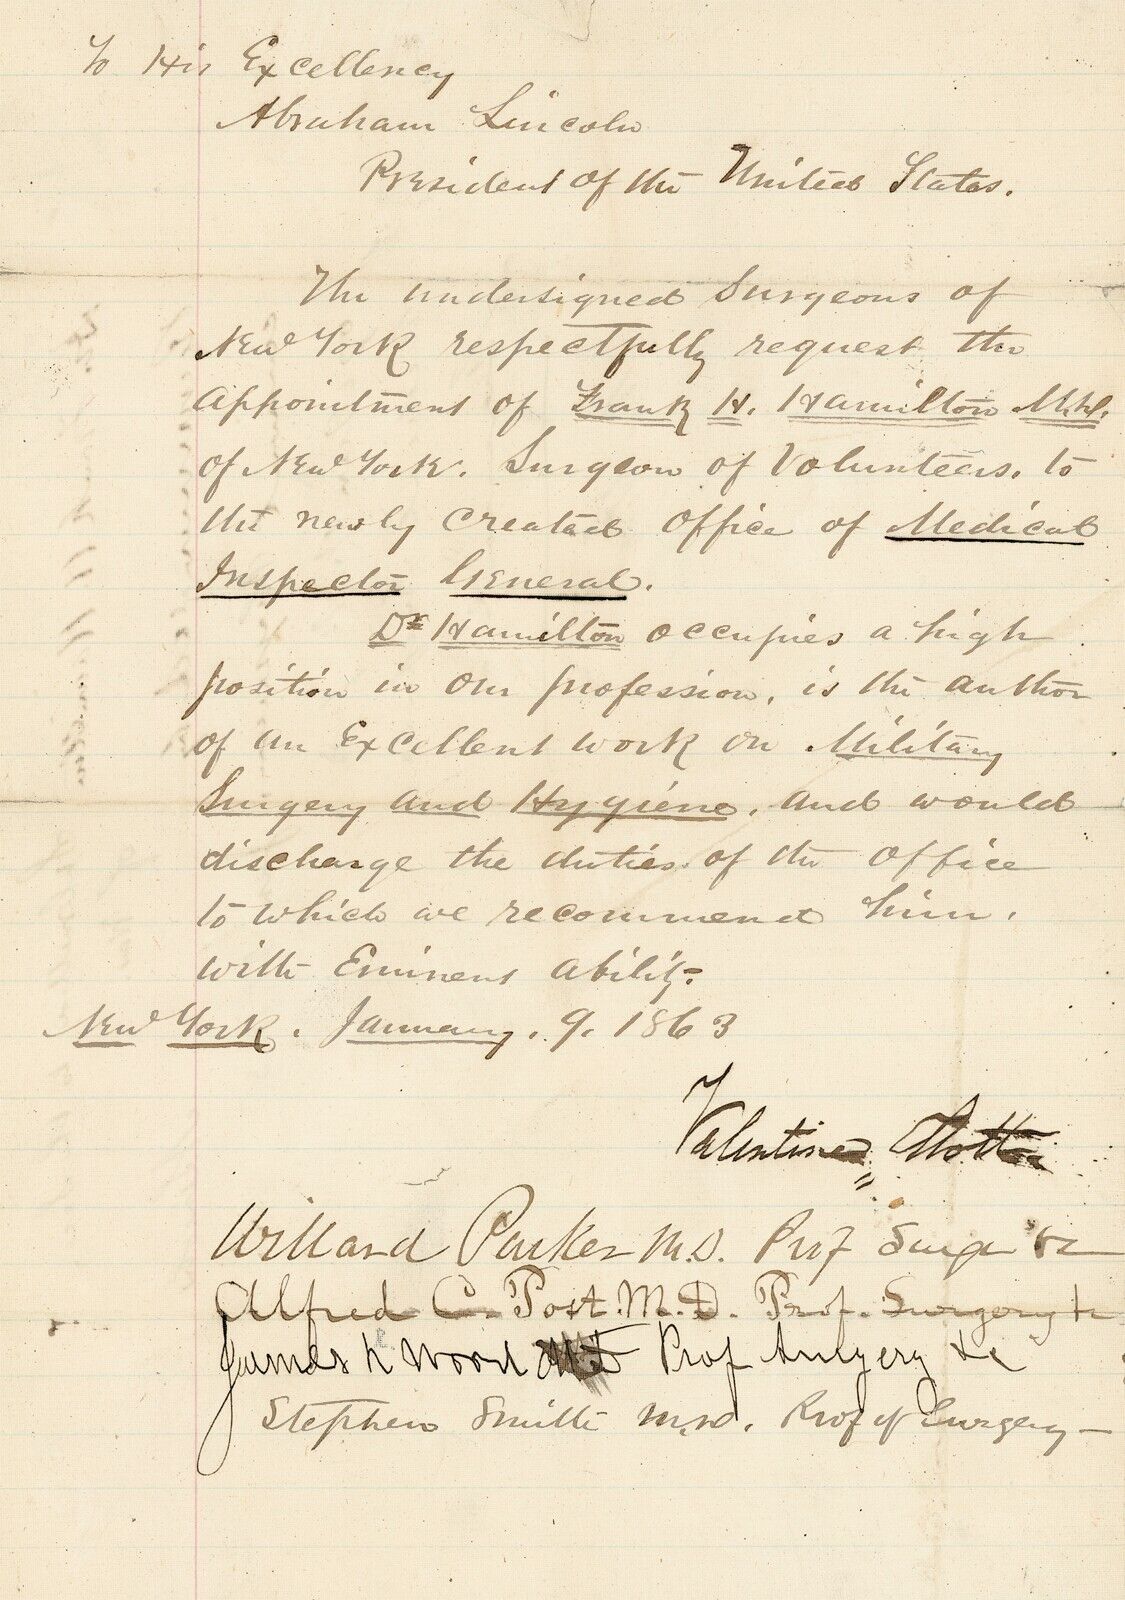 To His Excellency
Abraham Lincoln
President of the United States.
The undersigned Surgeons of
New York respectfully request the
appointment of Frank H. Hamilton M.D.
of New York. Surgeon of Volunteers, to
the newly created office of Medical
Inspector General.
Dr Hamilton occupies a high
position in our profession, is the author
of an Excellent work on Military
Surgery and Hygiene, and would
discharge the duties of the office
to which we recommend him,
with Eminent ability.
New York. January. 9. 1863
Valentine Mott
Willard Parker M.D. Prof Surg &c
Alfred C. Post. M.D. Prof. Surgery &c
James R Wood MD Prof Surgery &c
Stephen Smith M.D. Prof of Surgery